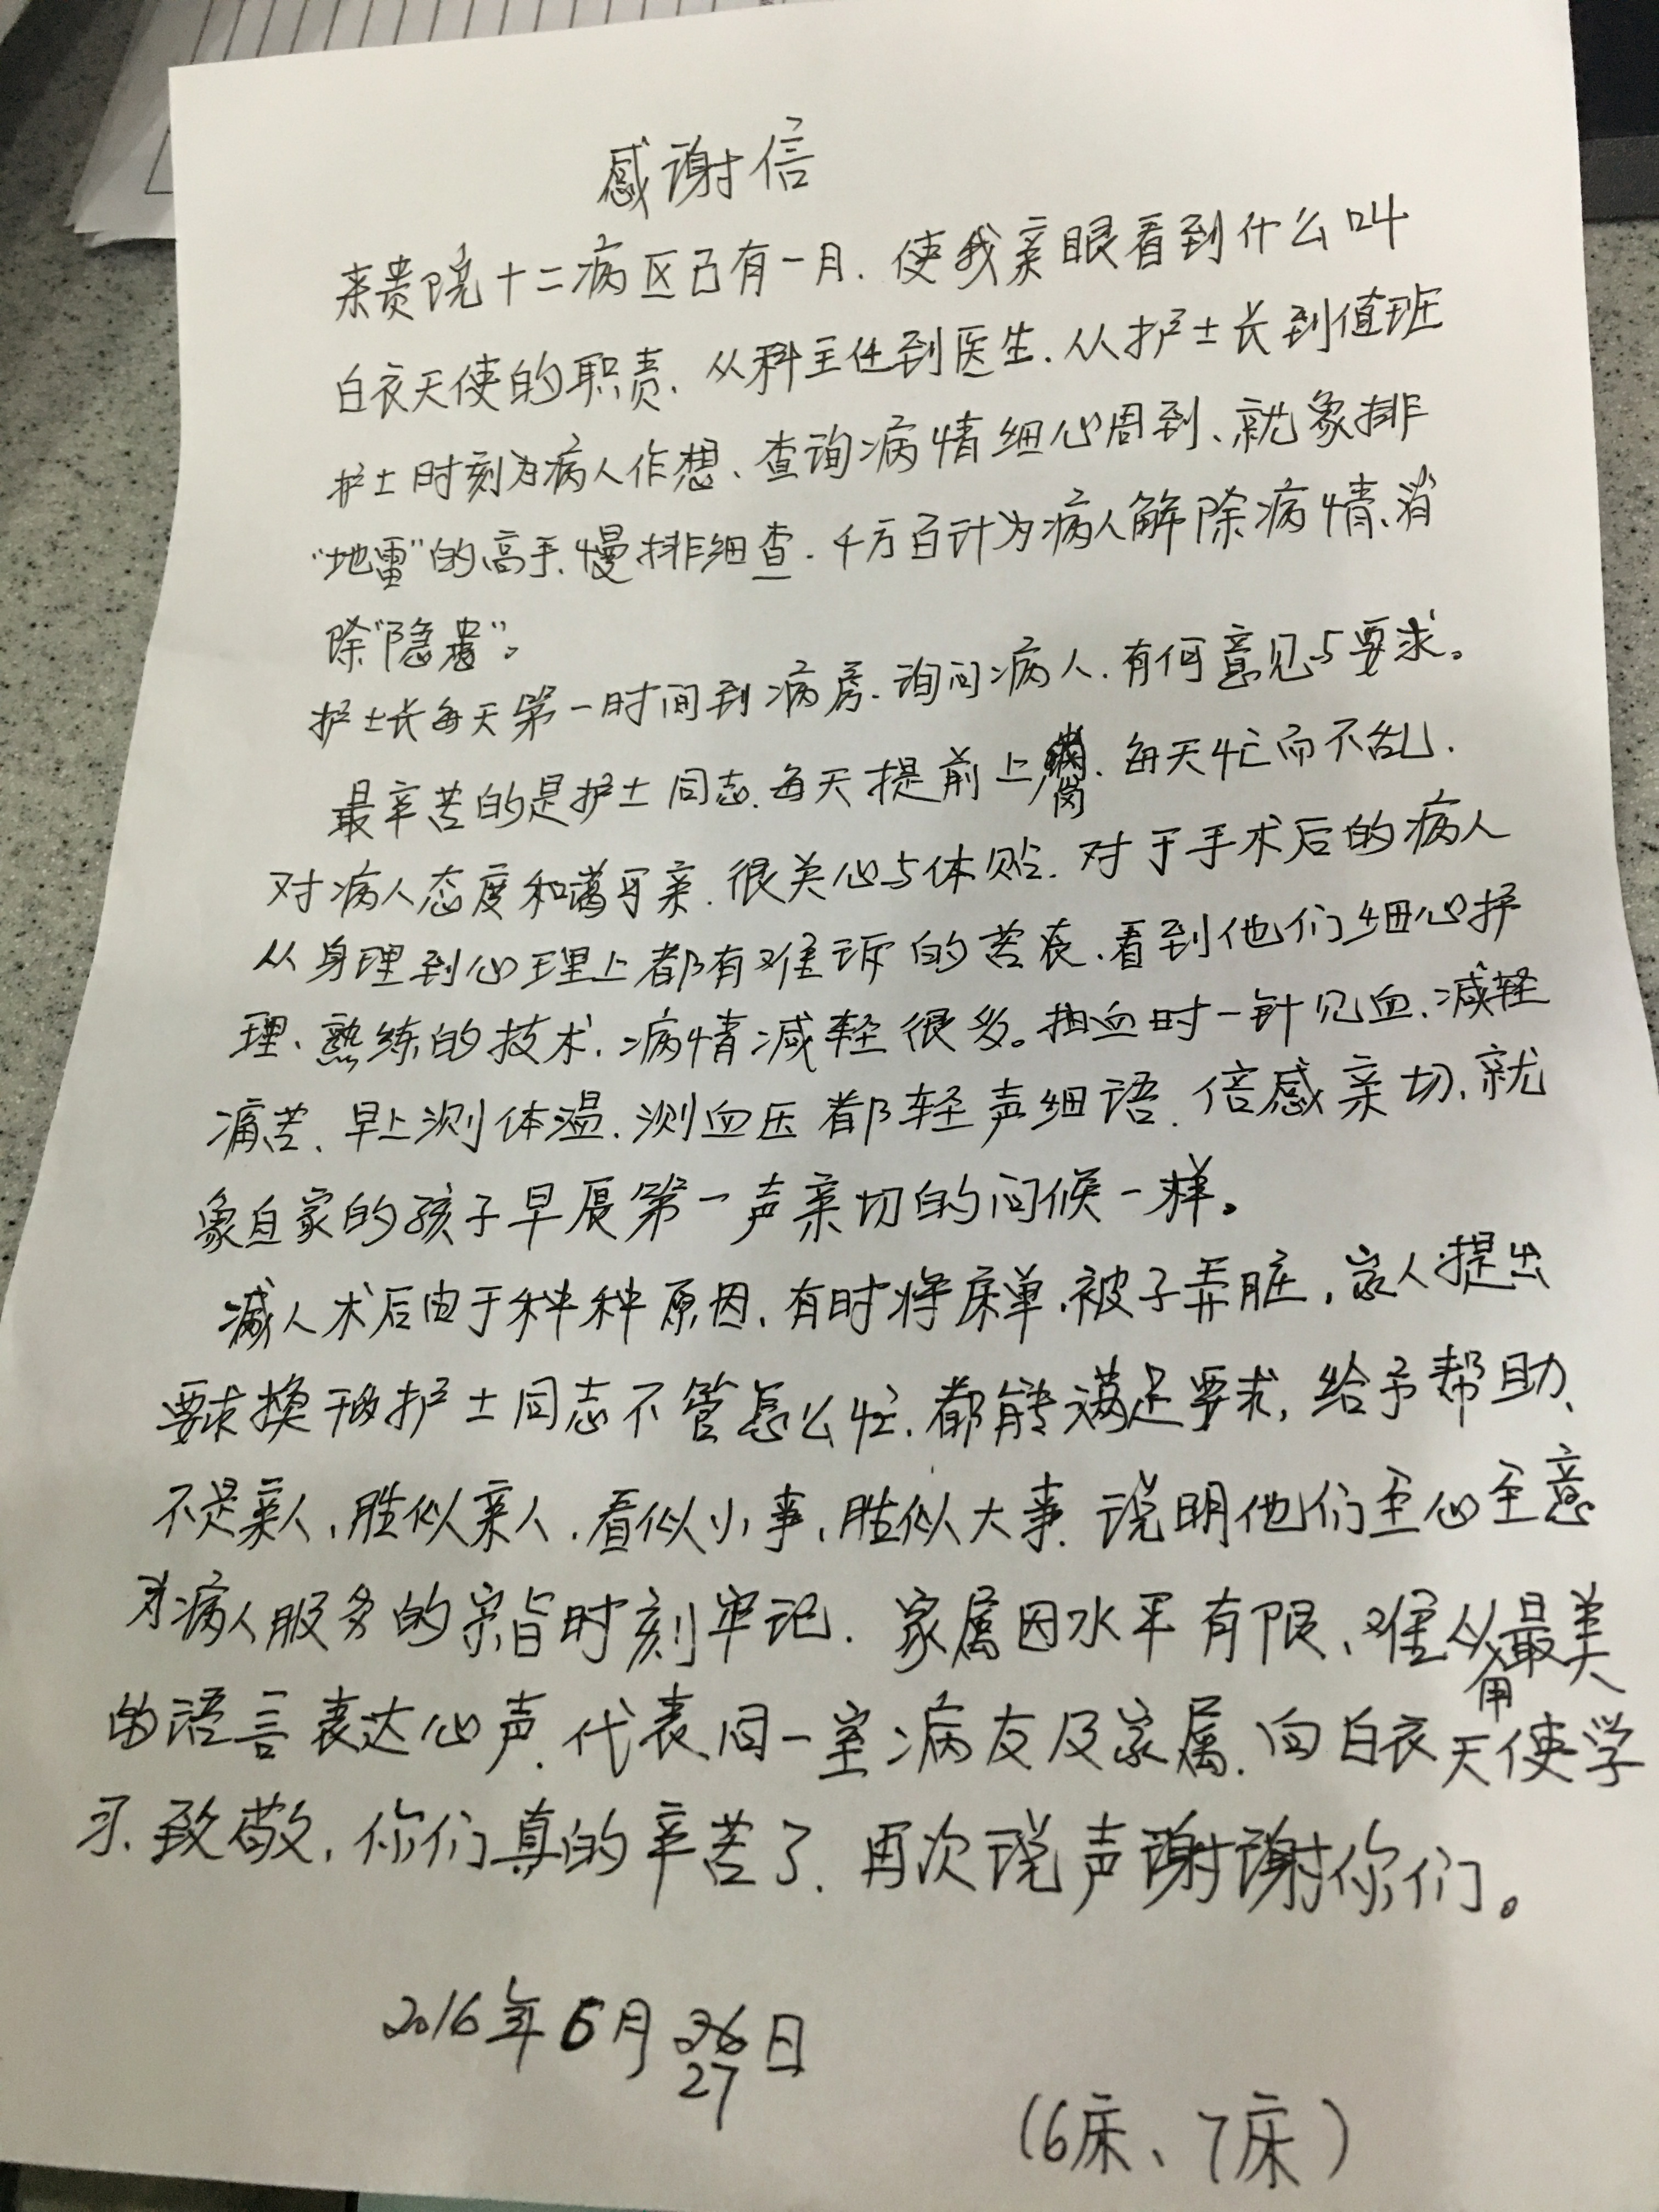 感谢信
来贵院十二病区已有一月.使我亲眼看到什么叫
白衣天使的职责.从科主任到医生.从护士长到值班
护士时刻为病人作想、查询病情细心周到、就象排
“地雷”的高手、慢排细查.千方百计为病人解除病情、消
除“隐患”。
护士长每天第一时间到病房.询问病人.有何意见与要求。
最辛苦的是护士同志.每天提前上岗.每天忙而不乱.
对病人态度和蔼可亲.很关心与体贴.对于手术后的病人
从身理到心理上都有难诉的苦衷.看到他们细心护
理、熟练的技术.病情减轻很多。抽血时一针见血.减轻
痛苦.早上测体温.测血压都轻声细语.倍感亲切.就
象自家的孩子早晨第一声亲切的问候一样。
人术后由于种种原因.有时将床单.被子弄脏,家人提出
要求换护士同志不管怎么忙.都能满足要求,给予帮助、
不是亲人,胜似亲人.看似小事,胜似大事.说明他们全心全意
为病人服务的宗旨时刻牢记.家属因水平有限、难用最美
的语言表达心声.代表同一室病友及家属.向白衣天使学
习.致敬,你们真的辛苦了.再次说声谢谢你们。
2016年6月27日
(6床、7床)